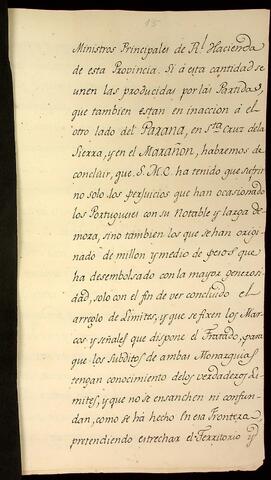 15
Ministros Principales de Rl. Hacienda
de esta Provincia. Si á esta cantidad se
unen las producidas por las Partidas,
que tambien estan en inaccion á el
otro lado del Paraná, en Sta. Cruz dela
Sierra, y en el Marañon, habremos de
concluir, que S.M.C. ha tenido que sufrir
no solo los perjuicios que han ocasionado
los Portugueses con su notable y larga de-
moza, sino tambien los que se han origi-
nado de millon y medio de pesos que
ha desembolsado con la mayor generosi-
dad, solo con el fin de ver concluido el
arreglo de Límites, y que se fixen los Mar-
cos y señales que dispone el Tratado, para
que los subditos de ambas Monarquias
tengan conocimiento delos verdaderos Li-
mites, y que no se ensanchen ni confun-
dan, como se ha hecho en esa Frontera,
pretendiendo estrechar el Territorio y